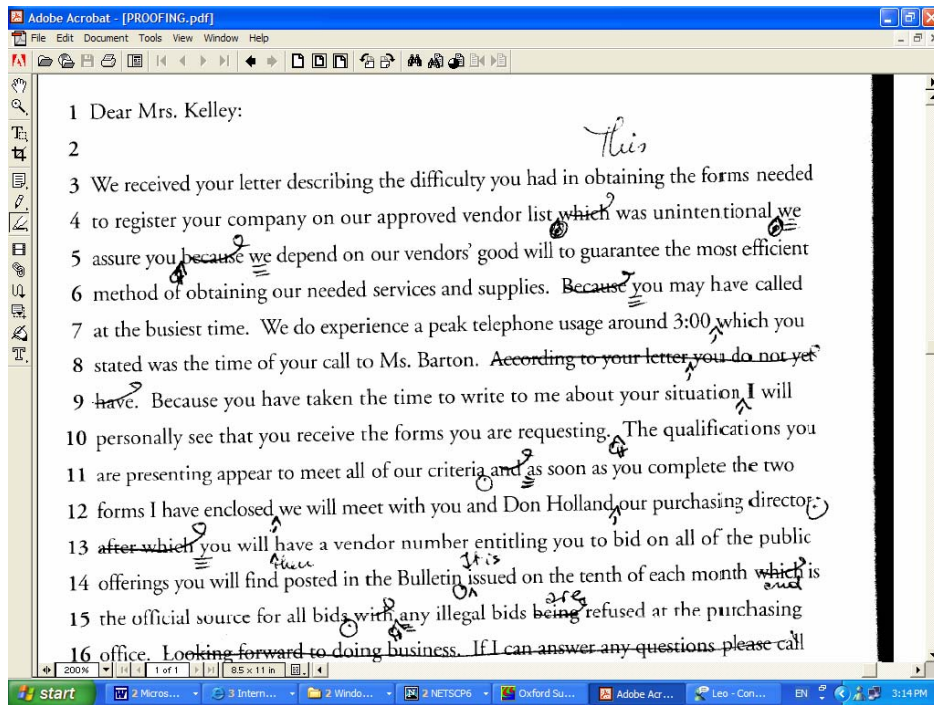 Adobe Acrobat - [PROOFING.pdf]
File Edit Document Tools View Window Help
1 Dear Mrs. Kelley:
2
This
3 We received your letter describing the difficulty you had in obtaining the forms needed
4 to register your company on our approved vendor list which was unintentional we
5 assure you because we depend on our vendors' good will to guarantee the most efficient
6 method of obtaining our needed services and supplies. Because you may have called
7 at the busiest time. We do experience a peak telephone usage around 3:00, which you
8 stated was the time of your call to Ms. Barton. According to your letter, you do not yet
9 have. Because you have taken the time to write to me about your situation, I will
10 personally see that you receive the forms you are requesting. The qualifications you
11 are presenting appear to meet all of our criteria and as soon as you complete the two
12 forms I have enclosed, we will meet with you and Don Holland, our purchasing director.
13 after which you will have a vendor number entitling you to bid on all of the public
then It is
14 offerings you will find posted in the Bulletin issued on the tenth of each month which is
are and
15 the official source for all bids with any illegal bids being refused at the purchasing
16 office. Looking forward to doing business. If I can answer any questions please call
200% 1 of 1 8.5 x 11 in
start 2 Micros... 3 Intern... 2 Windo... 2 NETSCP6 Oxford Su... Adobe Acr... Leo - Con... EN 3:14 PM